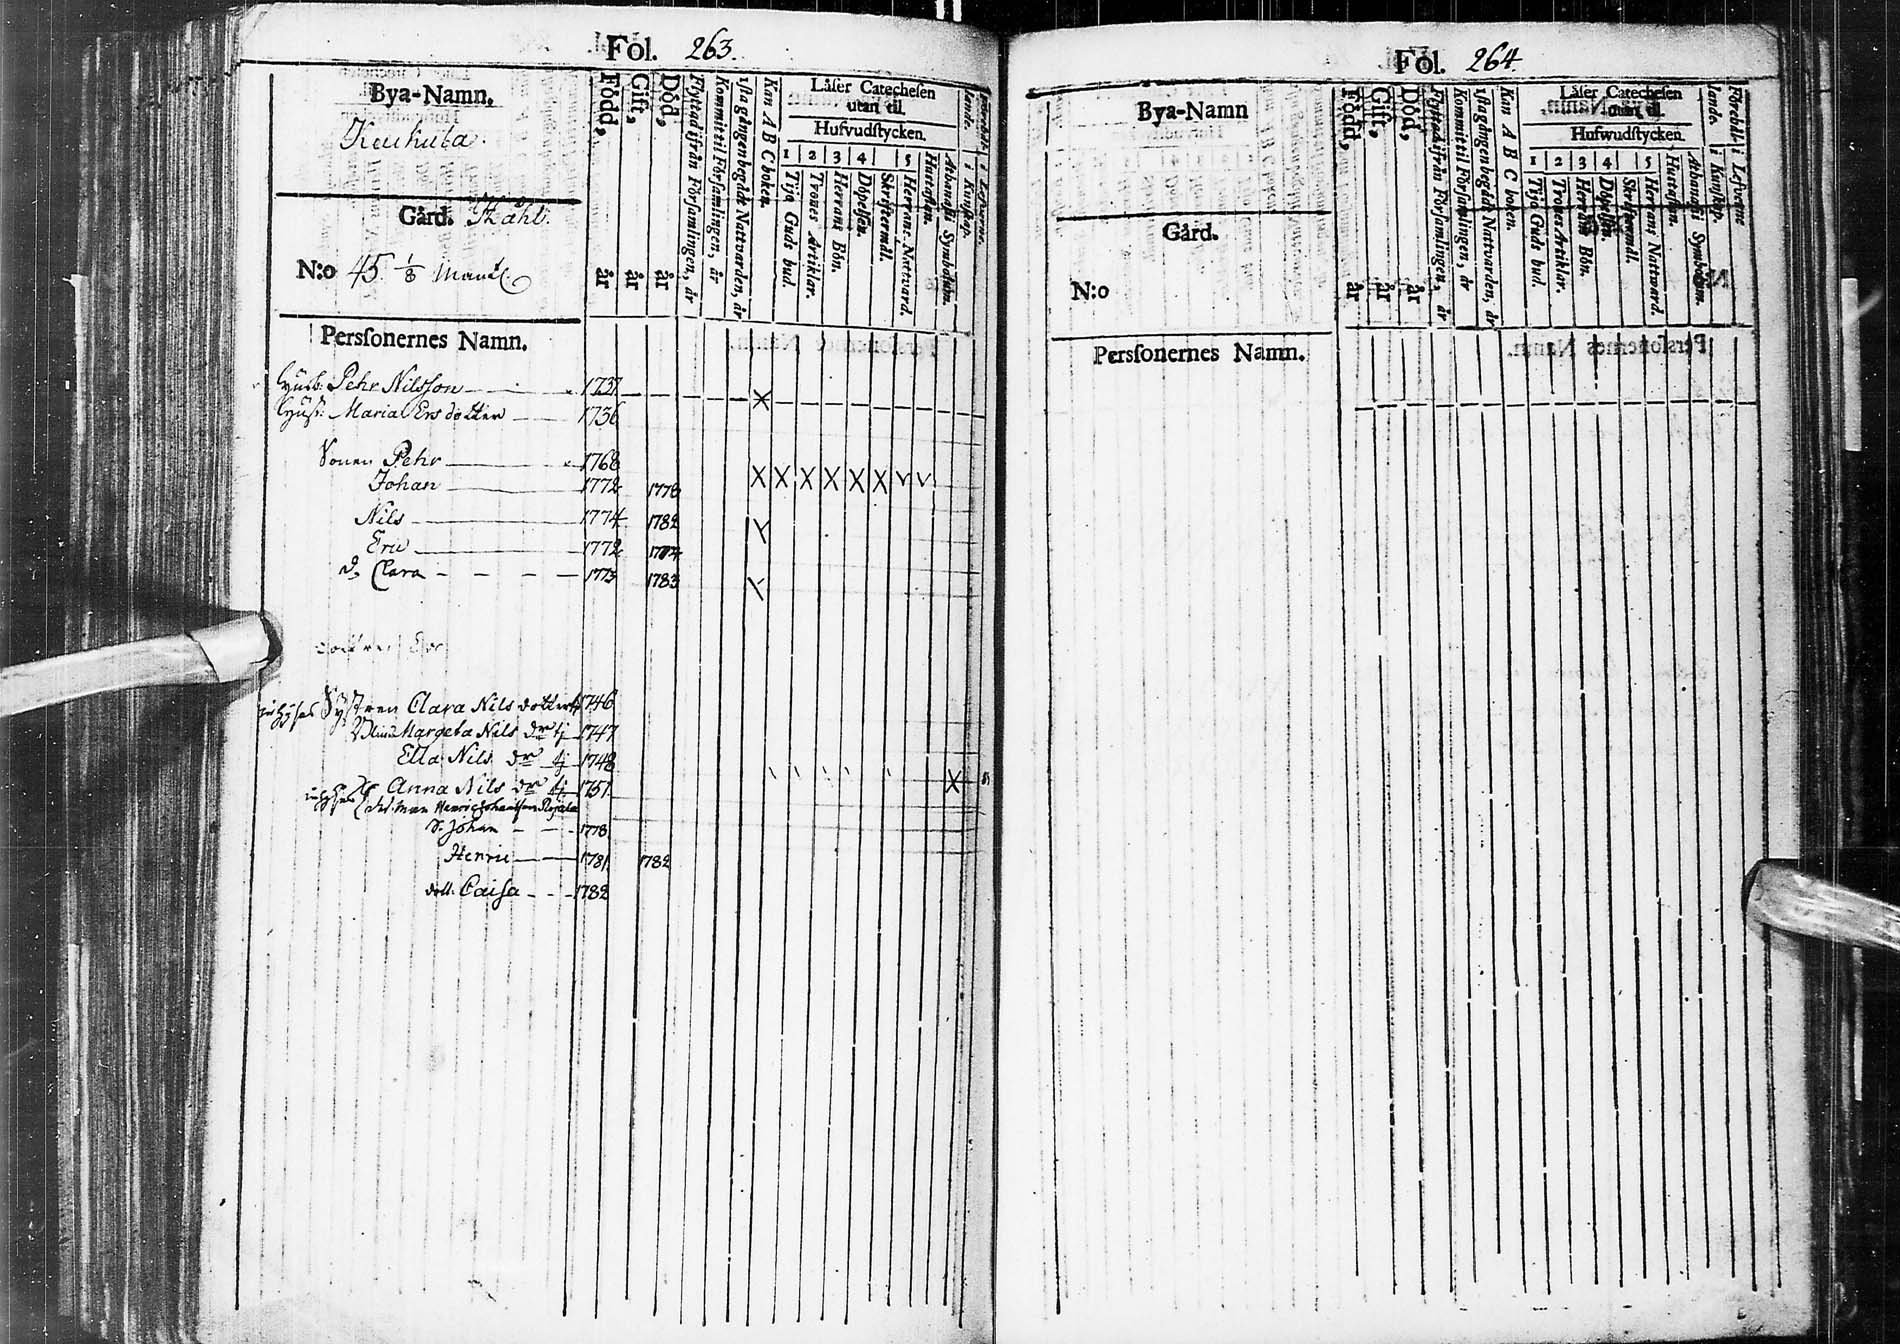 Fol. 263.
Bya-Namn.
Kaukula.
Gård. Ståhl.
N:o 45. 1/8 Mantl
Persſonernes Namn.
Född, år
Gift, år
Död, år
Flyttad ifrån Förſamlingen, år
Kommit til Förſamlingen, år
1ſta gången begådt Nattvarden, år
Kan A B C boken.
Läſer Catecheſen
utan til.
Hufvudſtycken.
1 2 3 4 5
Tijo Guds bud.
Trones Artiklar.
Herrans Bön.
Döpelſen.
Skriftermål.
Herrans Nattvard.
Huſtaflan.
Athanaſii Symbolum.
i Kunſkap.
i Lefverne.
Huſb: Pehr Nilsſon 1737
Huſt: Maria Ersdotter 1736
Sonen Pehr 1768
Johan 1772 1778
Nils 1774 1782
Eric 1772 1774
d. Clara 1773 1783
Syſtren Clara Nils dotter 1746
Margeta Nils dr tj 1747
Ella Nils dr tj 1748
Anna Nils dr tj 1751
des man Henric Johansſon
S. Johan 1778
Henric 1781 1782
dott. Caiſa 1782
Fol. 264.
Bya-Namn
Gård.
N:o
Persſonernes Namn.
Född, år
Gift, år
Död, år
Flyttad ifrån Förſamlingen, år
Kommit til Förſamlingen, år
1ſta gången begådt Nattvarden, år
Kan A B C boken.
Läſer Catecheſen
utan til.
Hufwudſtycken.
1 2 3 4 5
Tijo Guds bud.
Trones Artiklar.
Herrans Bön.
Döpelſen.
Skriftermål.
Herrans Nattward.
Huſtaflan.
Athanaſii Symbolum.
Förehållande.
i Kunſkap.
i Lefverne